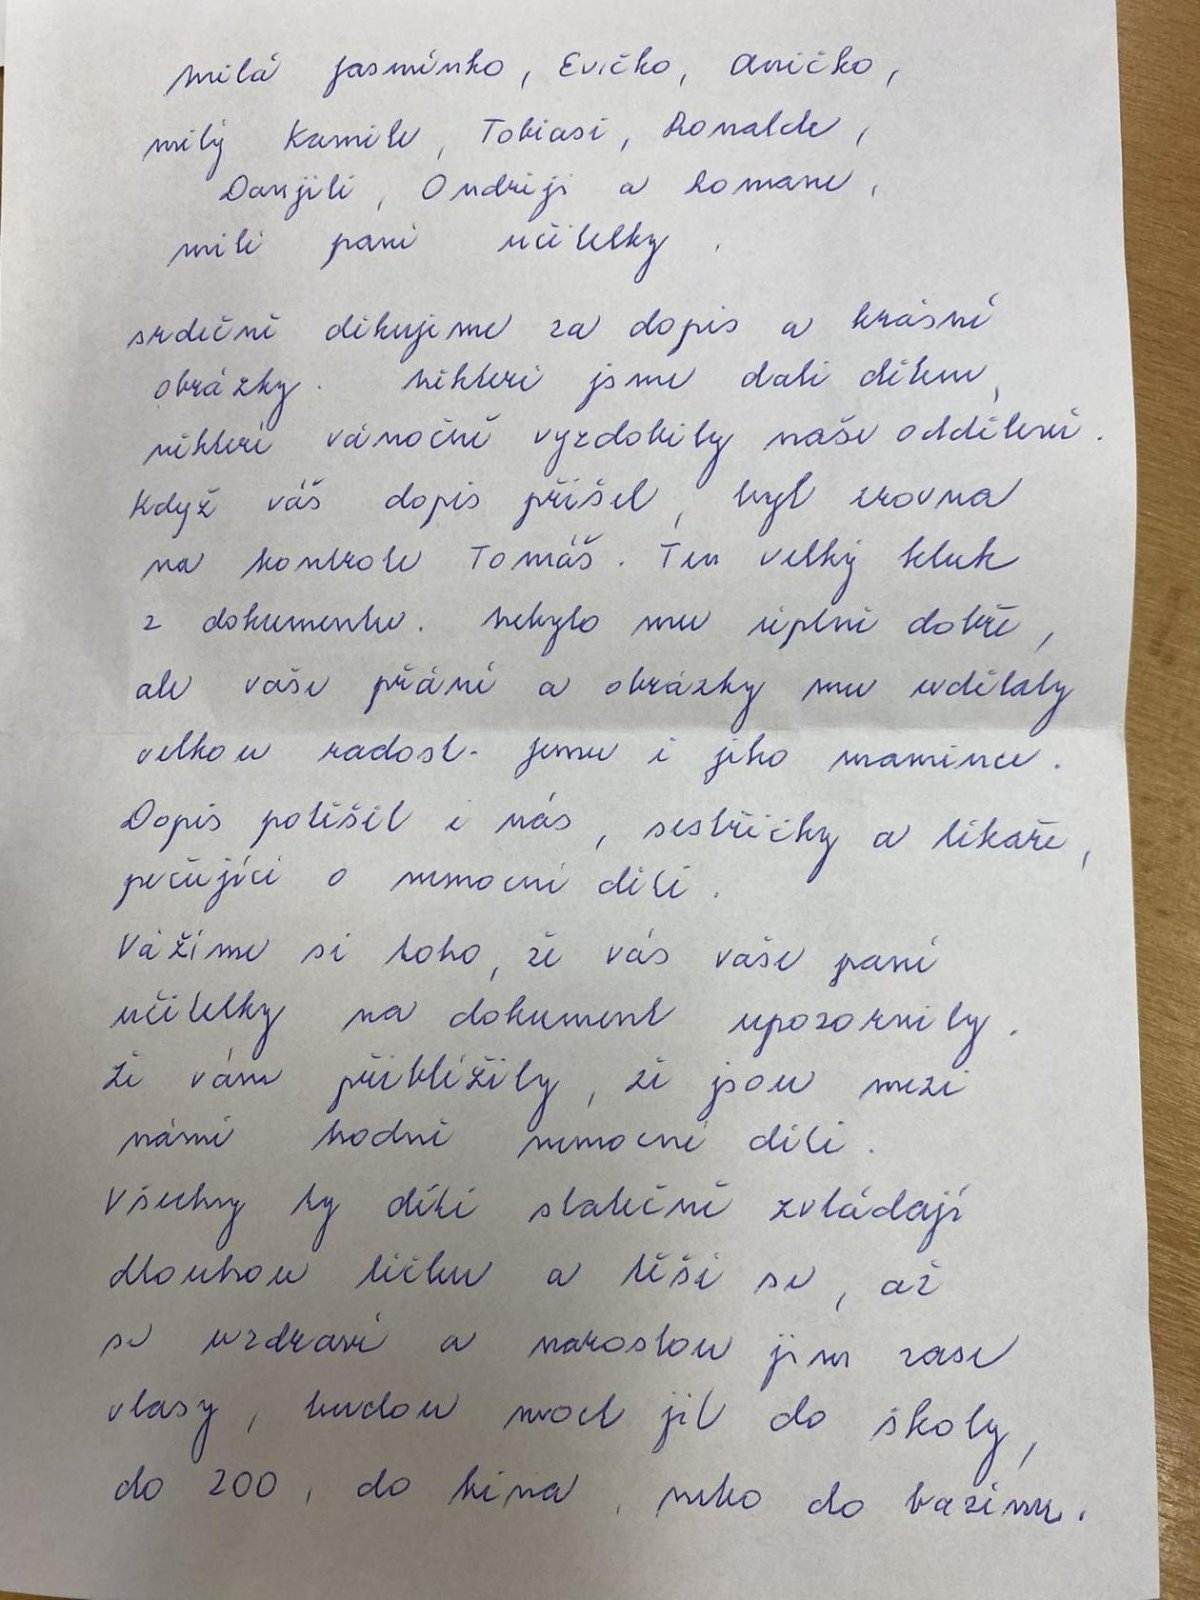 Milá Jasmínko, Evičko, Aničko,
milý Kamile, Tobiasi, Ronalde,
Danjeli, Ondřeji a Romane,
milé paní učitelky.
srdečně děkujeme za dopis a krásné
obrázky. Některé jsme dali dětem,
některé vánočně vyzdobily naše oddělení.
Když váš dopis přišel, byl zrovna
na kontrole Tomáš. Ten velký kluk
z dokumentu. Nebylo mu úplně dobře,
ale vaše přání a obrázky mu udělaly
velkou radost - jemu i jeho mamince.
Dopis potěšil i nás, sestřičky a lékaře,
pečující o nemocné děti.
Vážíme si toho, že vás vaše paní
učitelky na dokument upozornily.
Že vám přiblížily, že jsou mezi
námi hodně nemocné děti.
Všechny ty děti statečně zvládají
dlouhou léčbu a těší se, až
se uzdraví a narostou jim zase
vlasy, budou moct jít do školy,
do ZOO, do kina, nebo do bazénu.